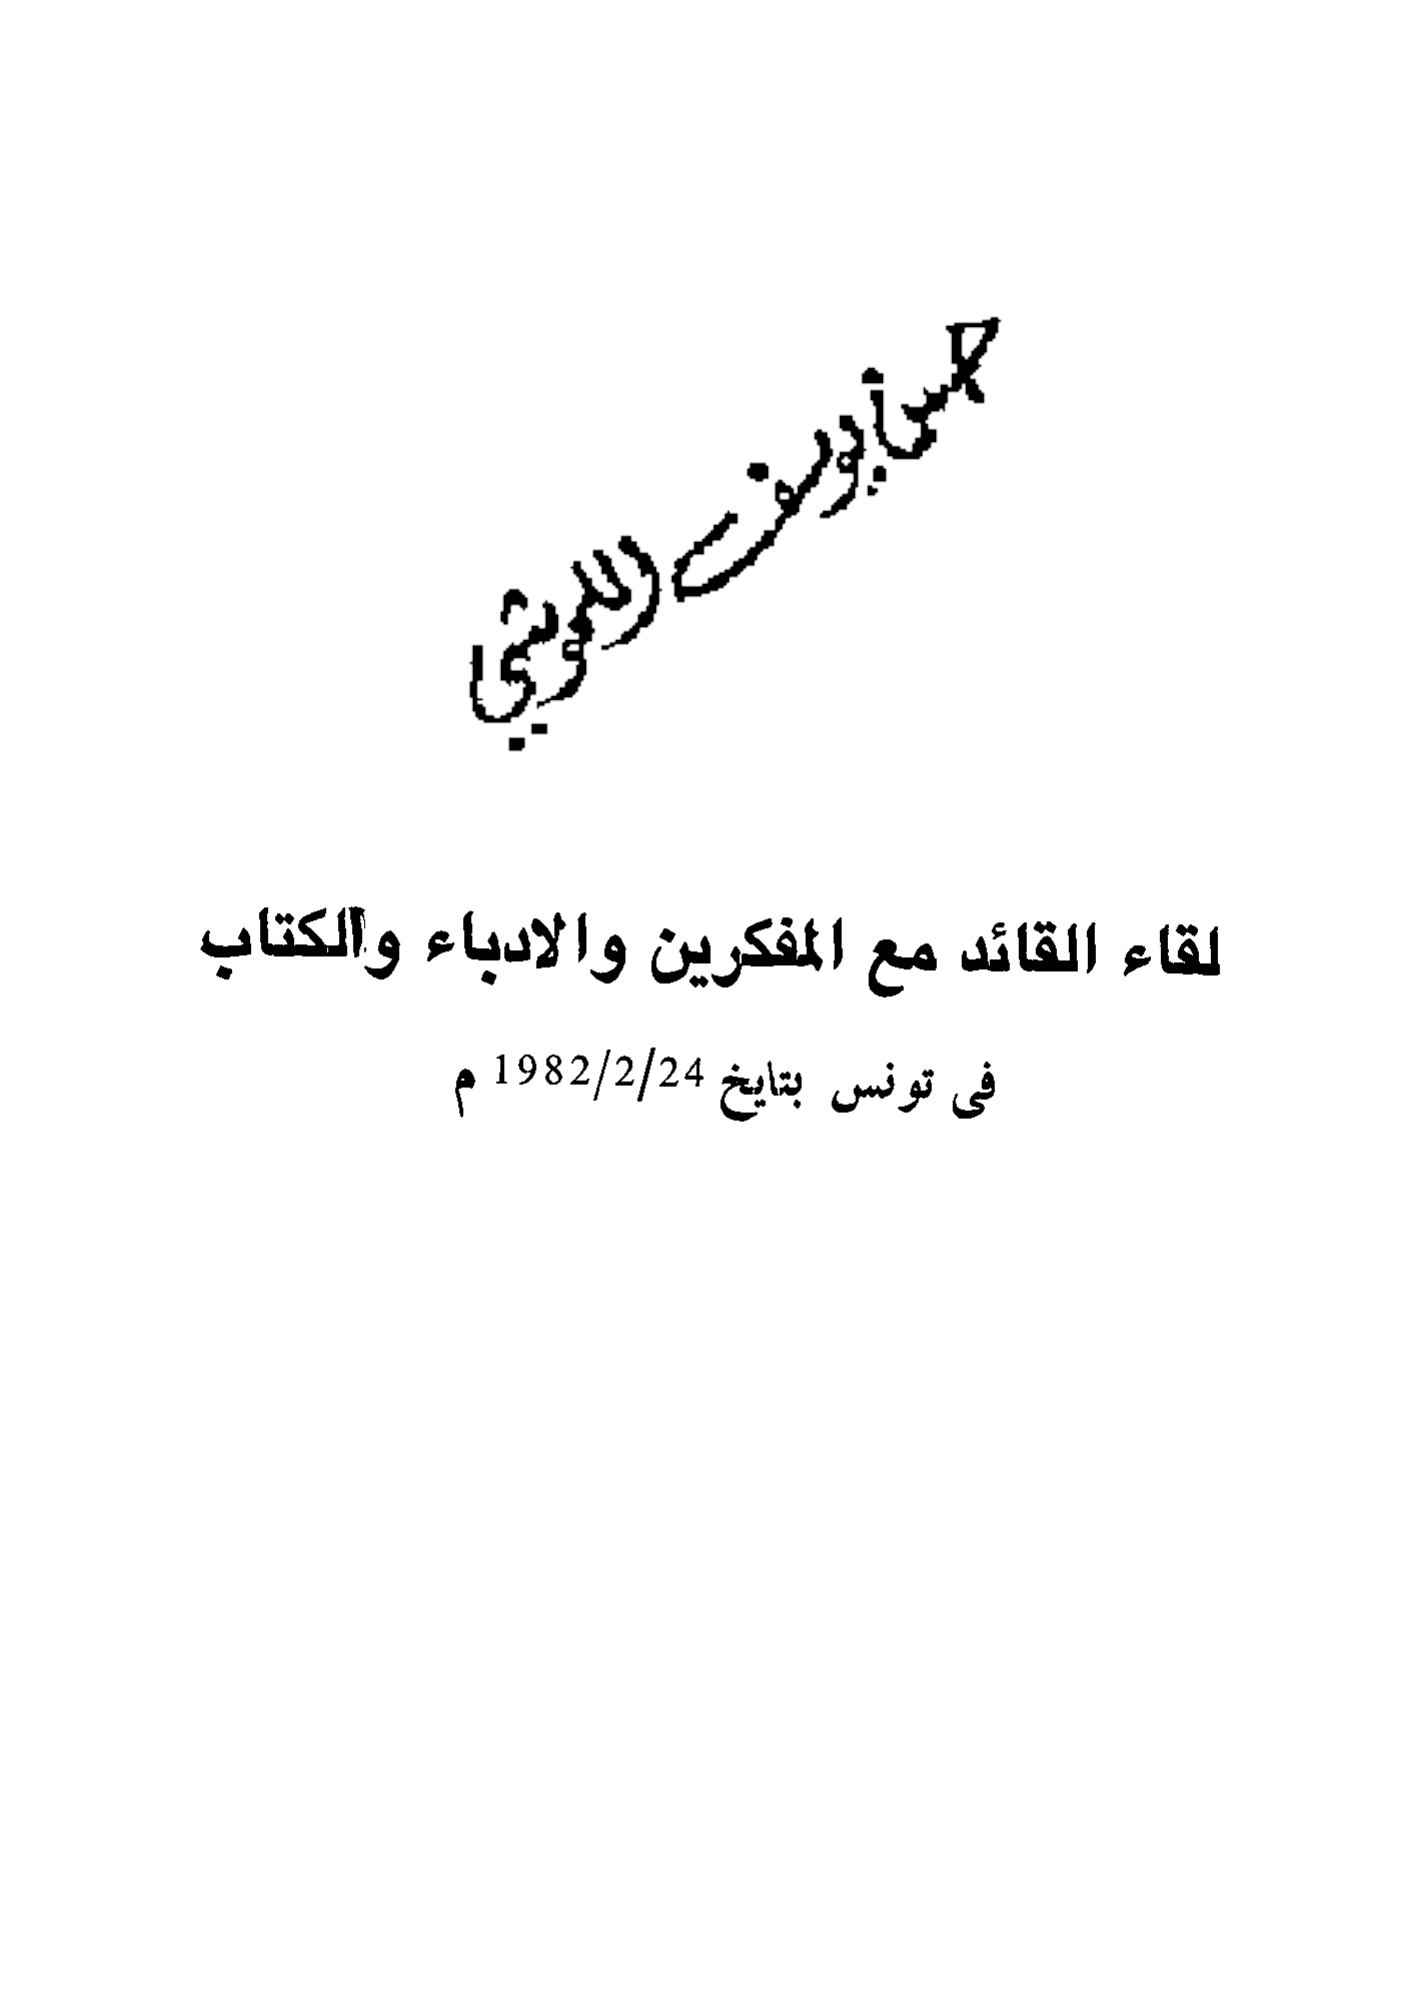 يوسف اللوشي
لقاء القائد مع المفكرين والادباء والكتاب
فى تونس بتايخ 1982/2/24 م